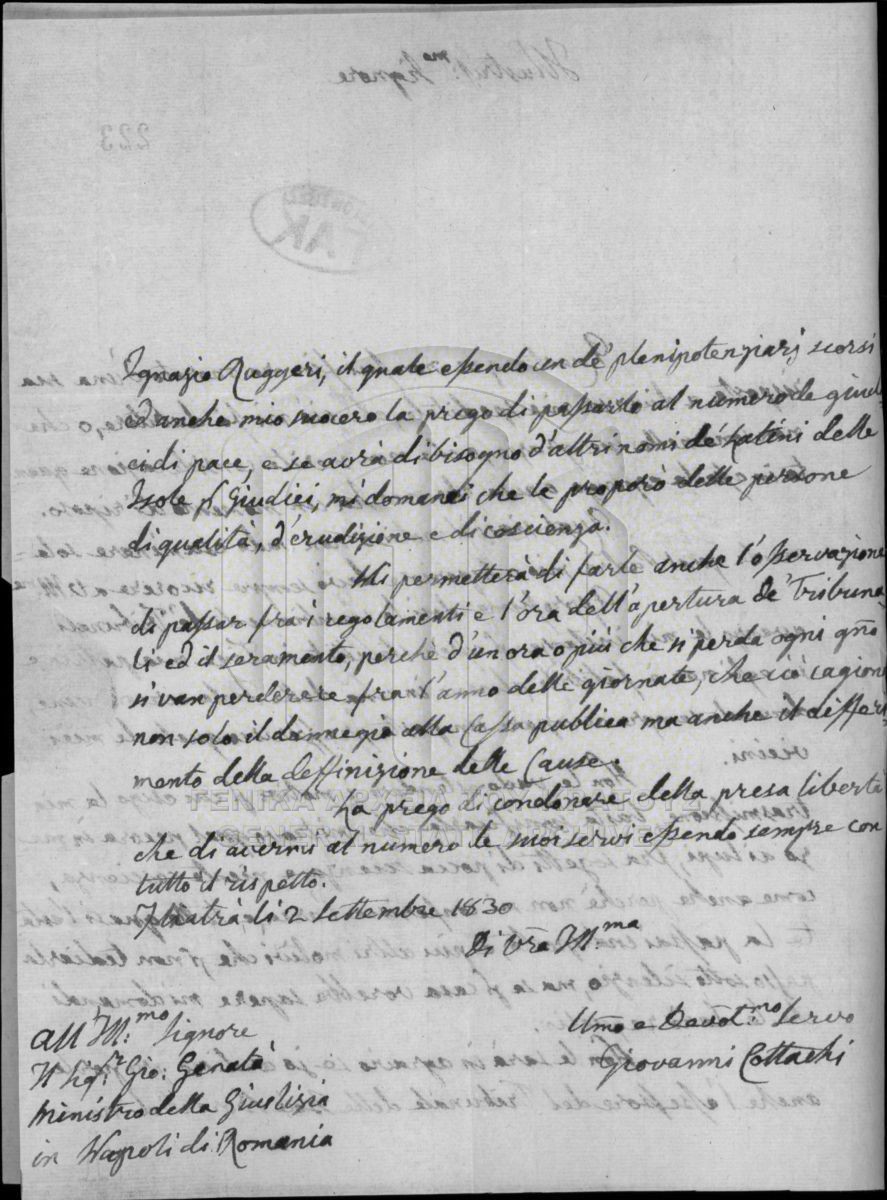 Ignazio Ruggeri, il quale essendo un de' plenipotenziarj scorsi
ed anche mio suocero la prego di passarlo al numero de giudi
ci di pace, e se avrà di bisogno d'altri nomi de' Latini delle
Isole pr Giudici, mi domandi che le proporò delle persone
di qualità, d'erudizione e di coscienza.
Mi permetterà di farle anche l'osservazione
di passar fra i regolamenti e l'ora dell'apertura de' Tribuna
li ed il seramento, perchè d'un ora o più che si perda ogni gno
si van perderere fra l'anno delle giornate, che ciò cagiona
non solo il dannegio alla Cassa publica ma anche il differi
mento della deffinizione delle Cause.
La prego di condonare della presa libertà
che di avermi al numero de suoi servi essendo sempre con
tutto il rispetto.
li 2 Settembre 1830
Di Vra Ill:ma
Umo e Devot:mo Servo
Giovanni Collachi
All' Ill:mo Signore
Il Sig:r Gio: Genatà
Ministro della Giustizia
in Napoli di Romania